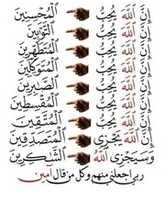 إِنَّ اللَّهَ يُحِبُّ الْمُحْسِنِينَ
إِنَّ اللَّهَ يُحِبُّ التَّوَّابِينَ
إِنَّ اللَّهَ يُحِبُّ الْمُتَطَهِّرِينَ
إِنَّ اللَّهَ يُحِبُّ الْمُتَوَكِّلِينَ
إِنَّ اللَّهَ يُحِبُّ الصَّابِرِينَ
إِنَّ اللَّهَ يُحِبُّ الْمُقْسِطِينَ
إِنَّ اللَّهَ يُحِبُّ الْمُتَّقِينَ
إِنَّ اللَّهَ يَجْزِي الْمُتَصَدِّقِينَ
وَسَيَجْزِي اللَّهُ الشَّاكِرِينَ
ربي اجعلني منهم وكل من قال آمين